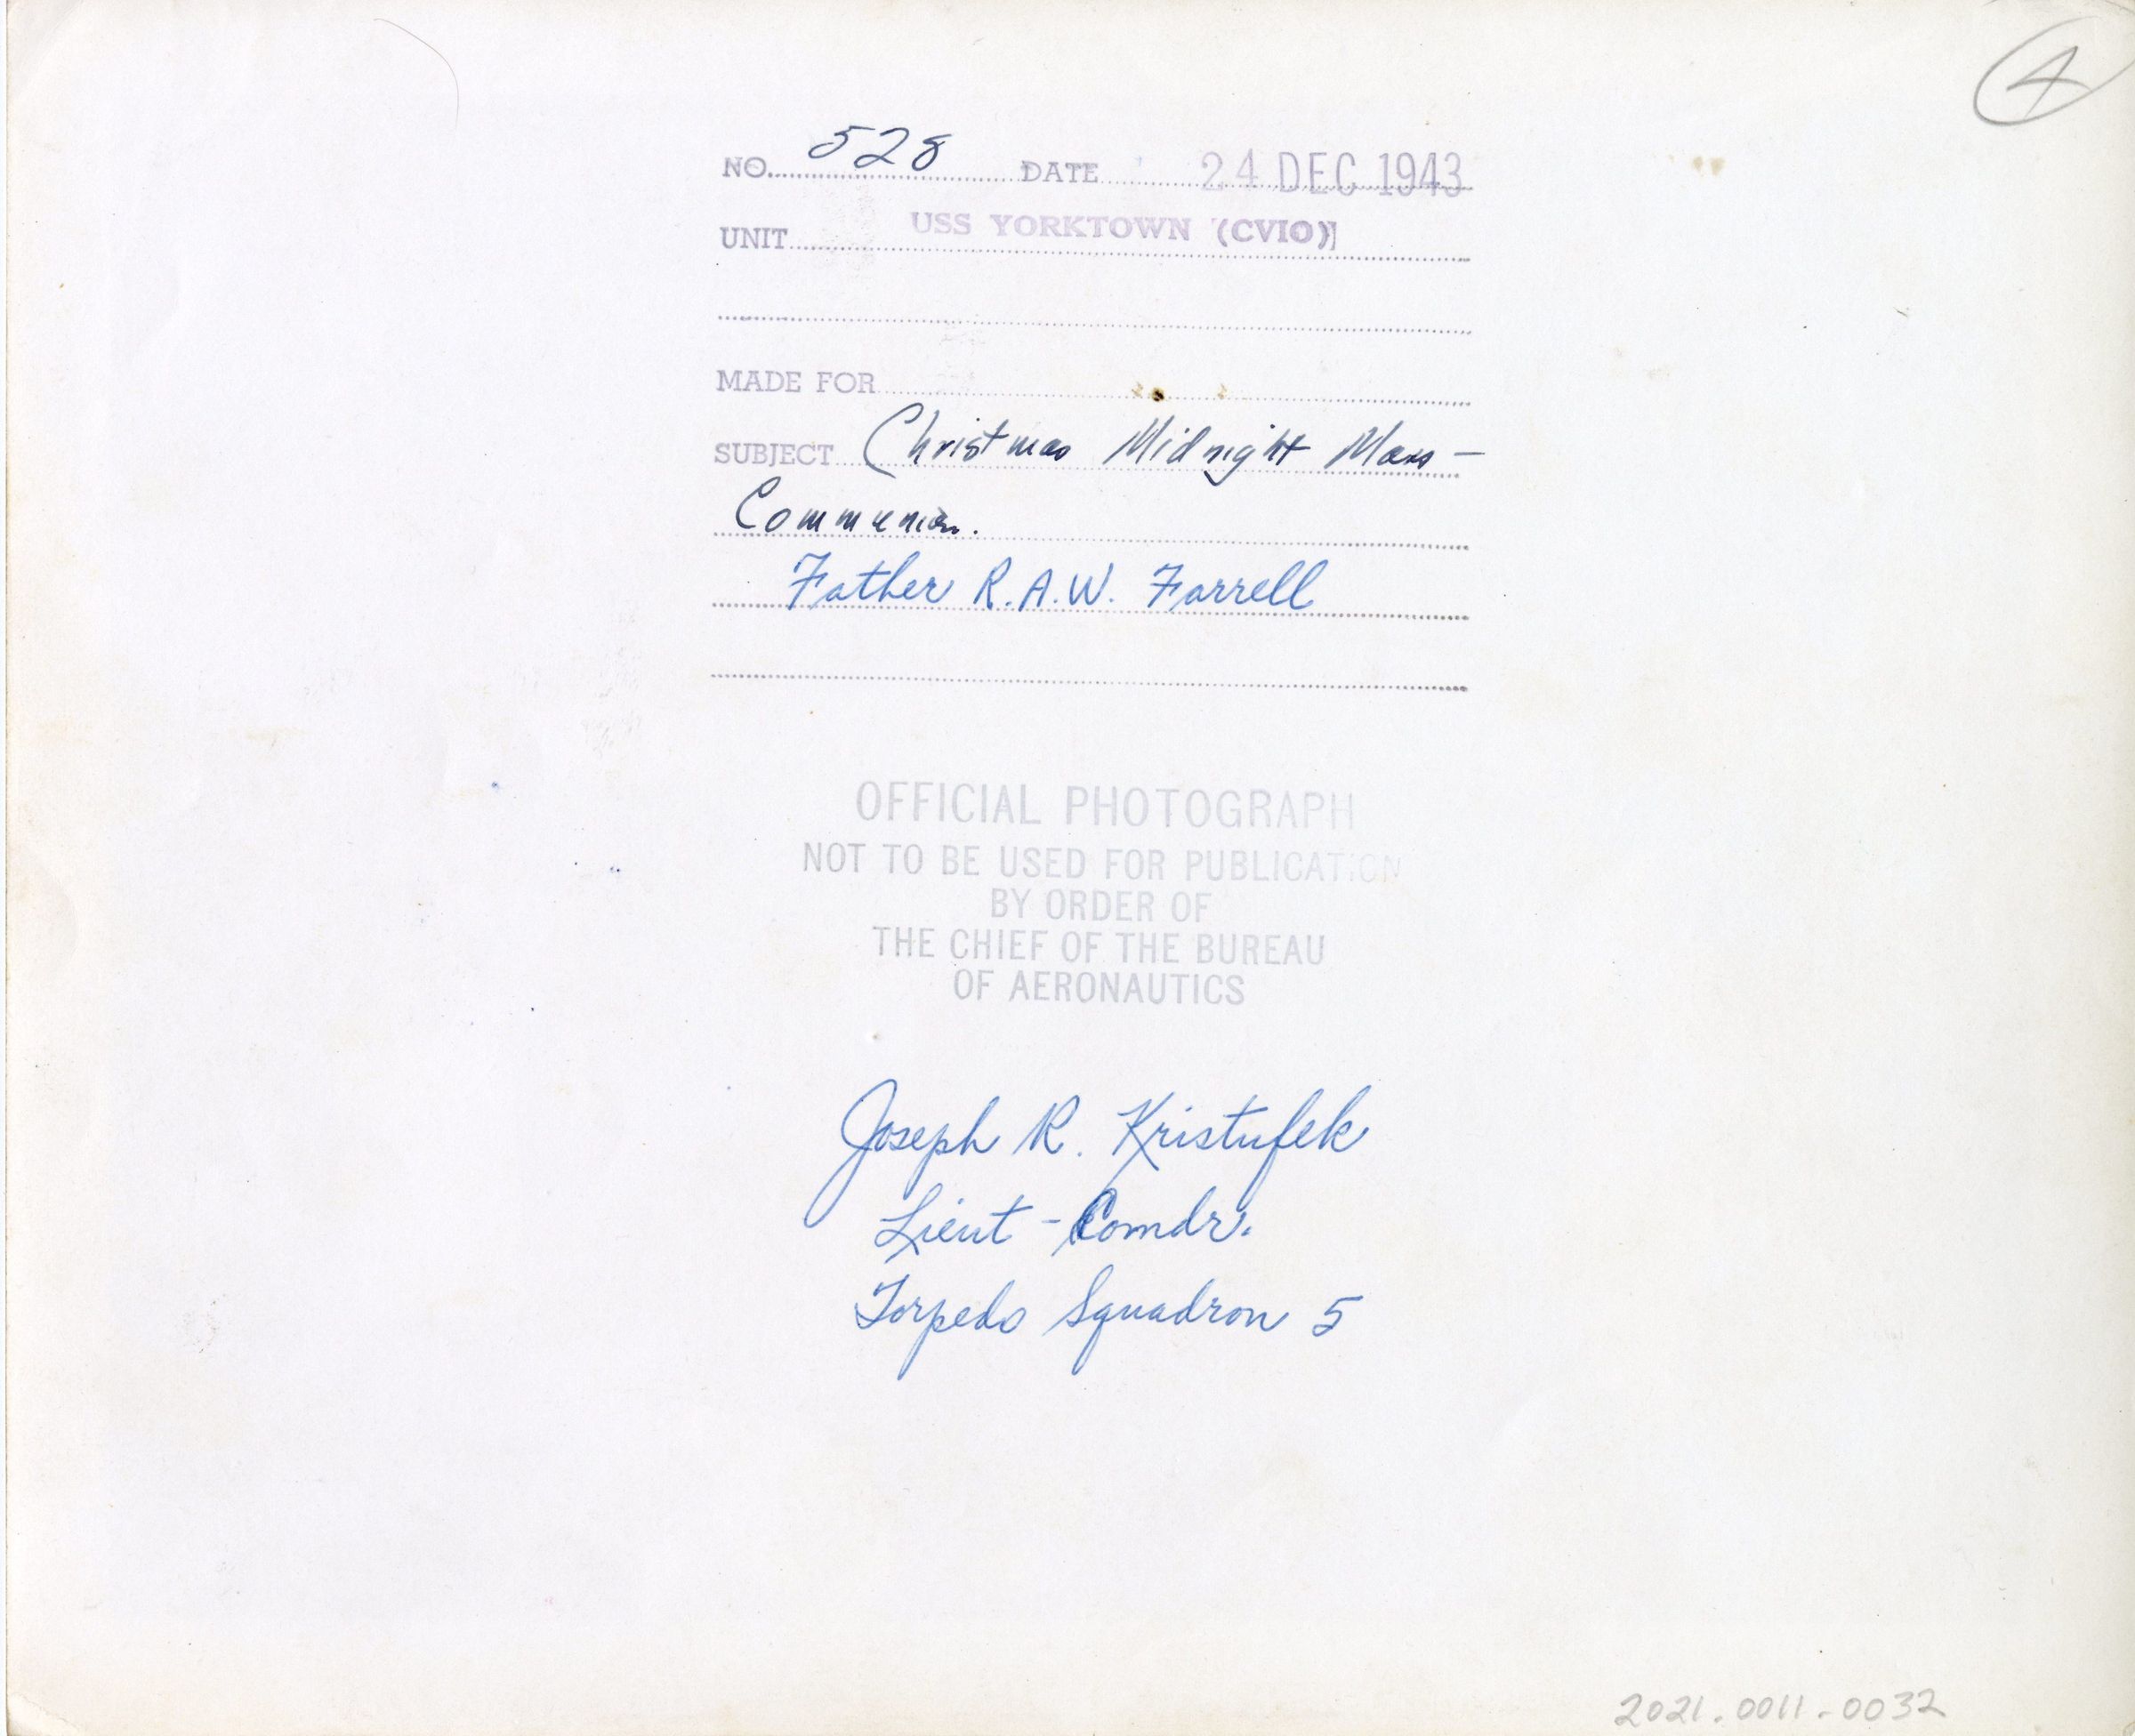 4
NO. 528 DATE 24 DEC 1943
UNIT USS YORKTOWN (CV10)
MADE FOR
SUBJECT Christmas Midnight Mass -
Communion.
Father R.A.W. Farrell
OFFICIAL PHOTOGRAPH
NOT TO BE USED FOR PUBLICATION
BY ORDER OF
THE CHIEF OF THE BUREAU
OF AERONAUTICS
Joseph R. Kristufek
Lieut - Comdr.
Torpedo Squadron 5
2021.0011-0032